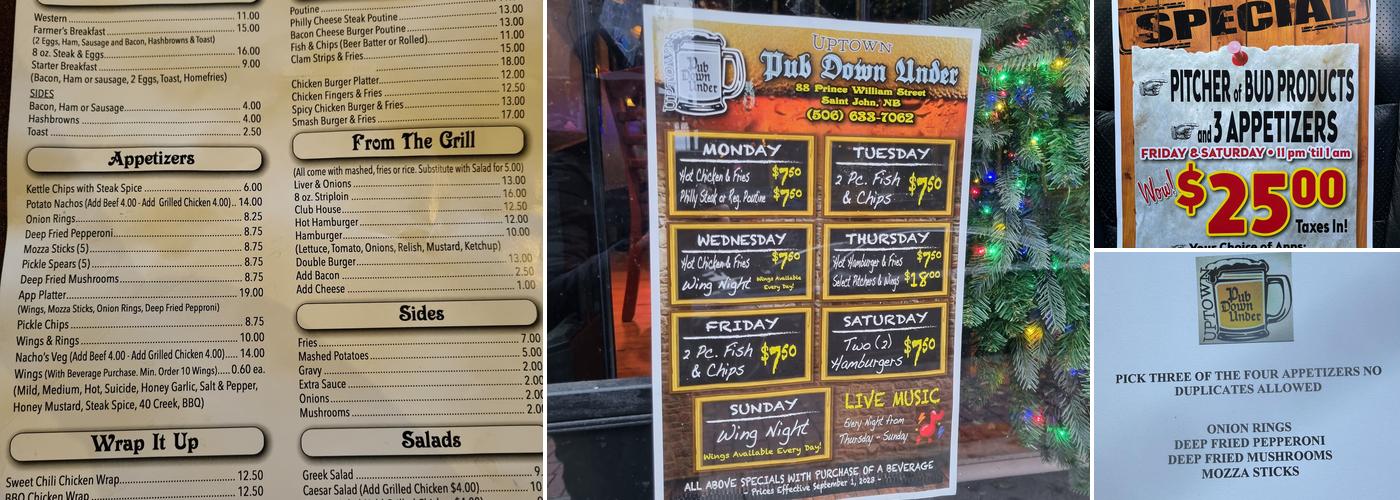 Western 11.00
Farmer's Breakfast 15.00
(2 Eggs, Ham, Sausage and Bacon, Hashbrowns & Toast)
8 oz. Steak & Eggs 16.00
Starter Breakfast 9.00
(Bacon, Ham or sausage, 2 Eggs, Toast, Homefries)
SIDES
Bacon, Ham or Sausage 4.00
Hashbrowns 4.00
Toast 2.50
Appetizers
Kettle Chips with Steak Spice 6.00
Potato Nachos (Add Beef 4.00 - Add Grilled Chicken 4.00) 14.00
Onion Rings 8.25
Deep Fried Pepperoni 8.75
Mozza Sticks (5) 8.75
Pickle Spears (5) 8.75
Deep Fried Mushrooms 8.75
App Platter 19.00
(Wings, Mozza Sticks, Onion Rings, Deep Fried Pepproni)
Pickle Chips 8.75
Wings & Rings 10.00
Nacho's Veg (Add Beef 4.00 - Add Grilled Chicken 4.00) 14.00
Wings (With Beverage Purchase. Min. Order 10 Wings) 0.60 ea.
(Mild, Medium, Hot, Suicide, Honey Garlic, Salt & Pepper,
Honey Mustard, Steak Spice, 40 Creek, BBQ)
Wrap It Up
Sweet Chili Chicken Wrap 12.50
BBQ Chicken Wrap 12.50
Poutine
13.00
Philly Cheese Steak Poutine
13.00
Bacon Cheese Burger Poutine
11.00
Fish & Chips (Beer Batter or Rolled)
15.00
Clam Strips & Fries
18.00
Chicken Burger Platter 12.00
Chicken Fingers & Fries 12.50
Spicy Chicken Burger & Fries 13.00
Smash Burger & Fries 17.00
From The Grill
(All come with mashed, fries or rice. Substitute with Salad for 5.00)
Liver & Onions 13.00
8 oz. Striploin 16.00
Club House 12.50
Hot Hamburger 12.00
Hamburger 10.00
(Lettuce, Tomato, Onions, Relish, Mustard, Ketchup)
Double Burger 13.00
Add Bacon 2.50
Add Cheese 1.00
Sides
Fries 7.00
Mashed Potatoes 5.00
Gravy 2.00
Extra Sauce 2.00
Onions 2.00
Mushrooms 2.00
Salads
Greek Salad 9.
Caesar Salad (Add Grilled Chicken $4.00) 10
UPTOWN
Pub
Down
Under
UPTOWN
Pub Down Under
88 Prince William Street
Saint John, NB
(506) 633-7062
MONDAY
Hot Chicken & Fries $7.50
Philly Steak or Reg. Poutine $7.50
TUESDAY
2 Pc. Fish
& Chips $7.50
WEDNESDAY
Hot Chicken & Fries $7.50
Wing Night
Wings Available
Every Day!
THURSDAY
Hot Hamburger & Fries $7.50
Select Pitchers & Wings $18.00
FRIDAY
2 Pc. Fish
& Chips $7.50
SATURDAY
Two (2)
Hamburgers $7.50
SUNDAY
Wing Night
Wings Available Every Day!
LIVE MUSIC
Every Night from
Thursday - Sunday
ALL ABOVE SPECIALS WITH PURCHASE OF A BEVERAGE
- Prices Effective September 1, 2023 -
SPECIAL
PITCHER of BUD PRODUCTS
and 3 APPETIZERS
FRIDAY & SATURDAY • 11 pm 'til 1 am
Wow! $25.00
Taxes In!
Your Choice of Apps:
UPTOWN
Pub
Down
Under
PICK THREE OF THE FOUR APPETIZERS NO
DUPLICATES ALLOWED
ONION RINGS
DEEP FRIED PEPPERONI
DEEP FRIED MUSHROOMS
MOZZA STICKS